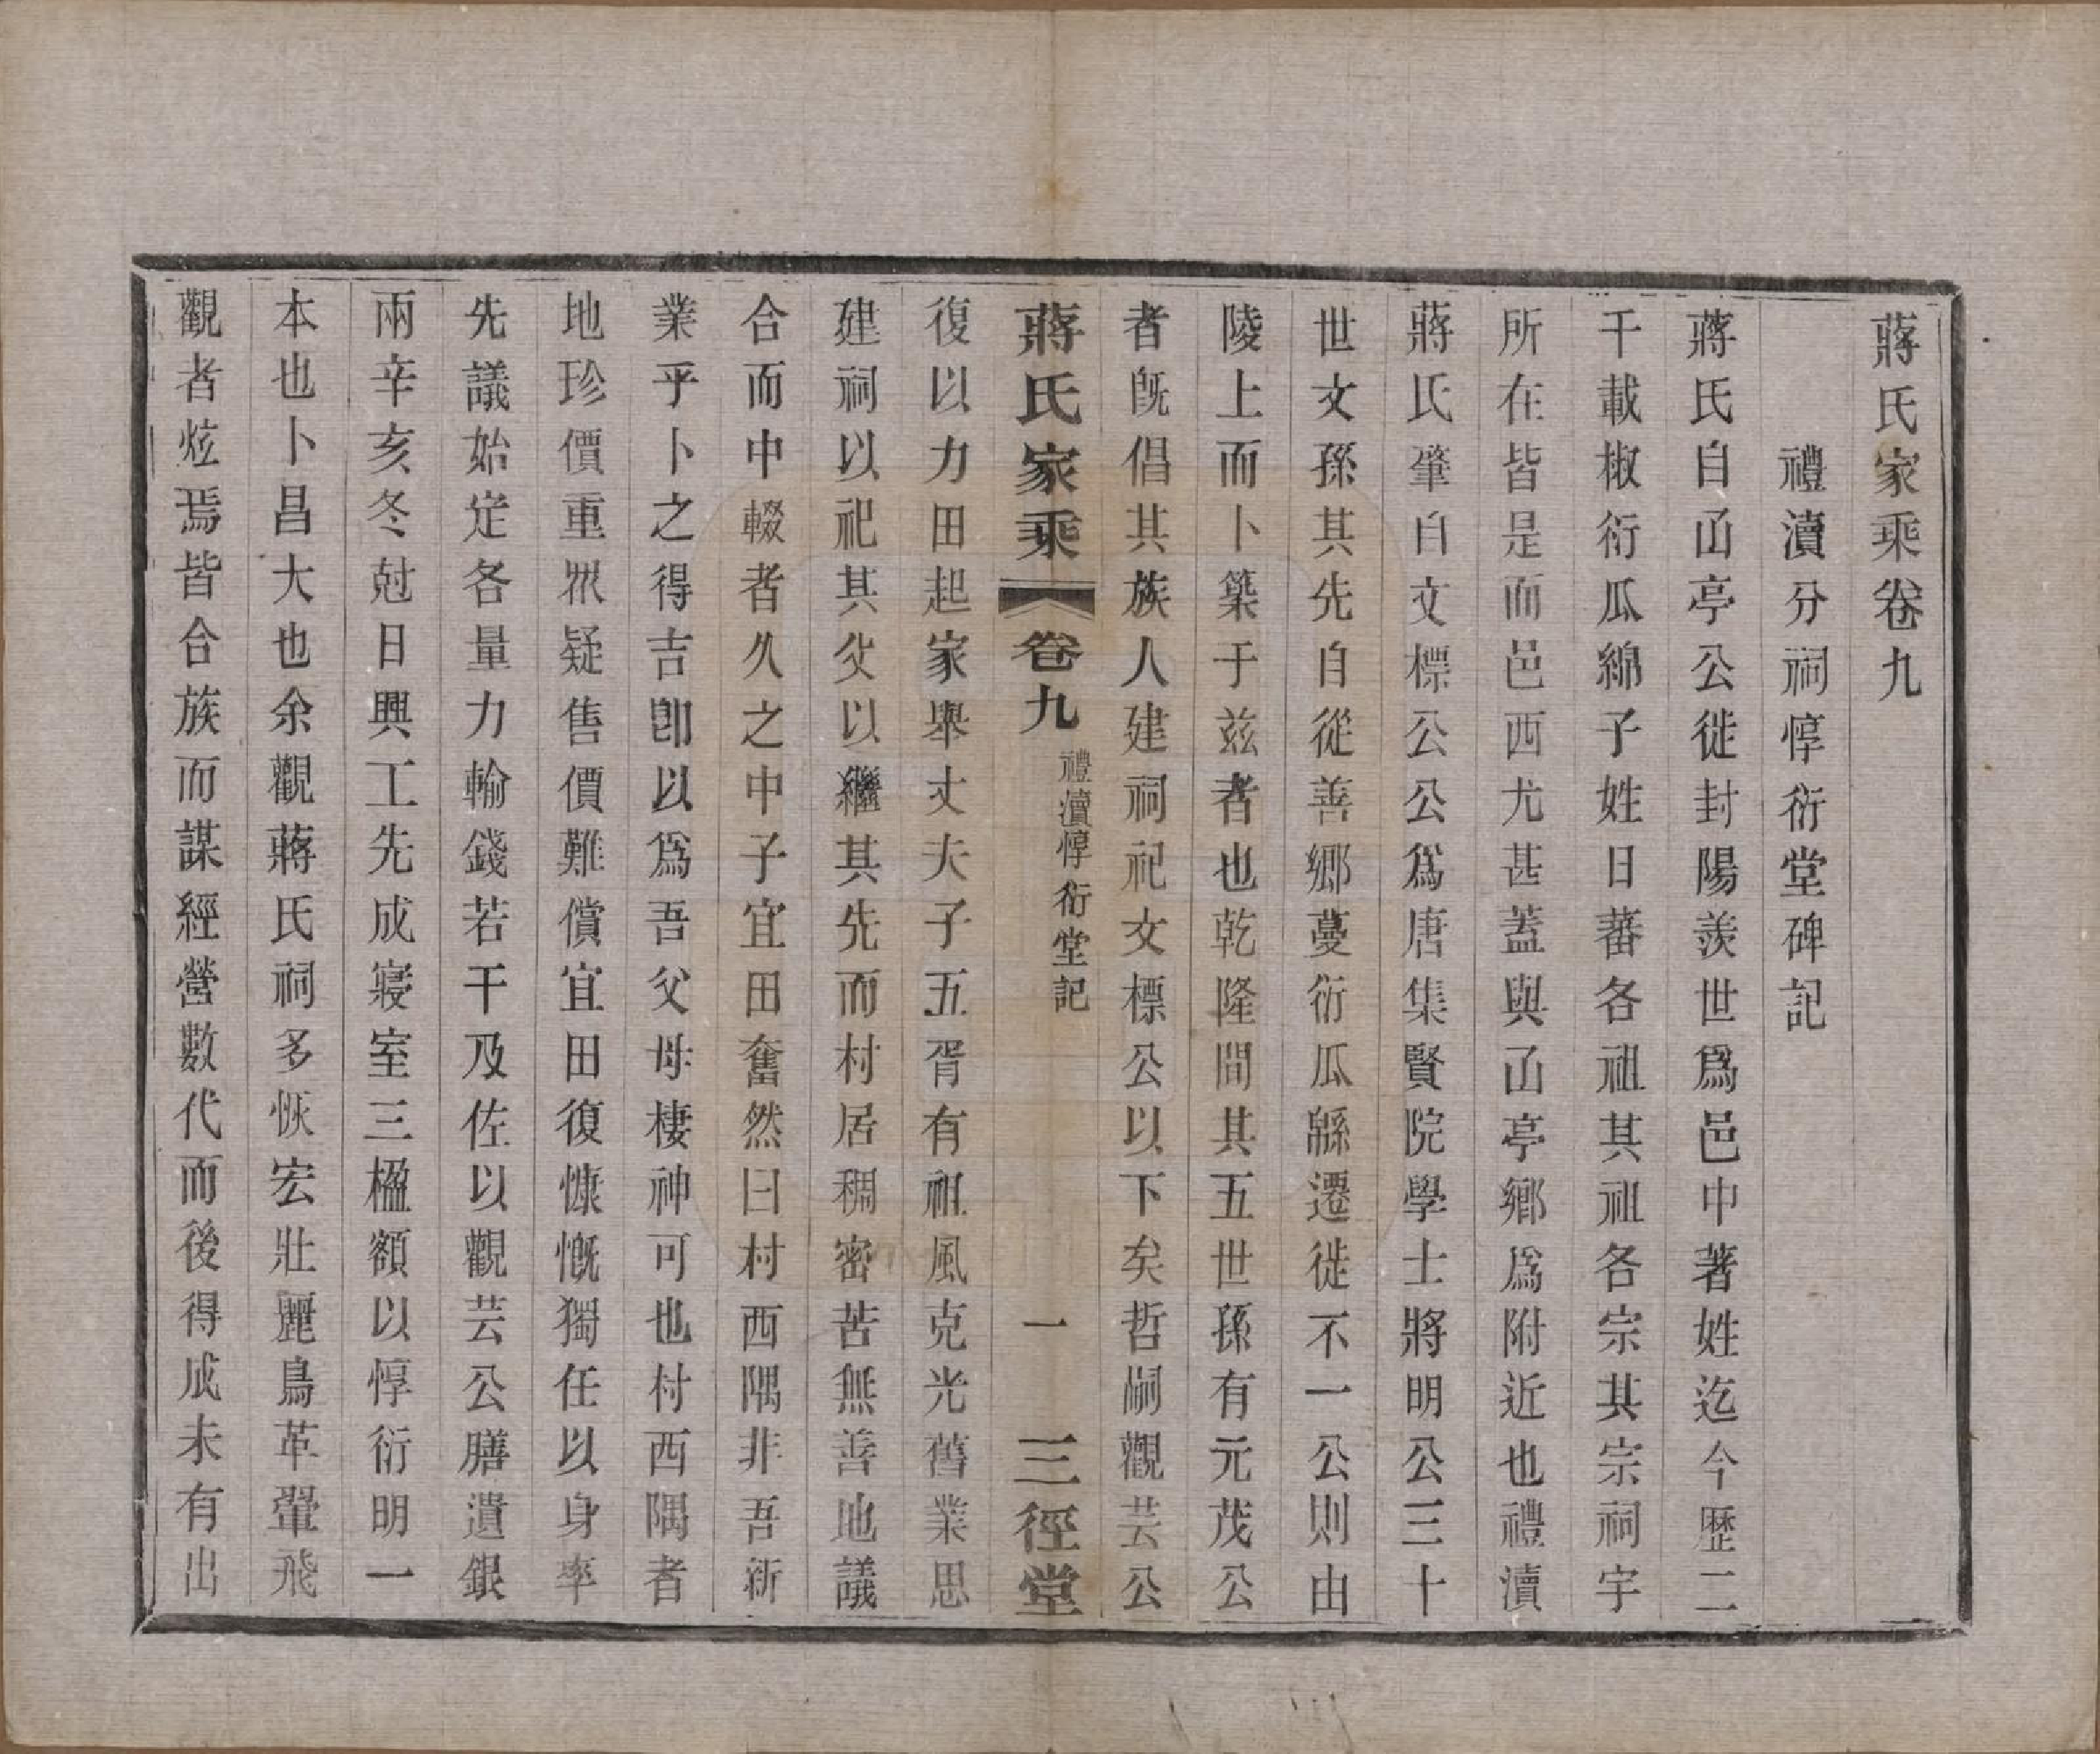 蔣氏家乘卷九
禮瀆分祠惇衍堂碑記
蔣氏自㓊亭公徙封陽羨世爲邑中著姓迄今歷二
千載椒衍瓜綿子姓日蕃各祖其祖各宗其宗祠宇
所在皆是而邑西尤甚蓋與㓊亭鄉爲附近也禮瀆
蔣氏肇自文標公公爲唐集賢院學士將明公三十
世文孫其先自從善鄉蔓衍瓜緜遷徙不一公則由
陵上而卜築于兹者也乾隆間其五世孫有元茂公
者旣倡其族人建祠祀文標公以下矣哲嗣觀芸公
蔣氏家乘 卷九 禮瀆惇衍堂記 一 三徑堂
復以力田起家舉丈夫子五胥有祖風克光舊業思
建祠以祀其父以繼其先而村居稠密苦無善地議
合而中輟者久之中子宜田奮然曰村西隅非吾新
業乎卜之得吉卽以爲吾父母棲神可也村西隅者
地珍價重衆疑售價難償宜田復慷慨獨任以身率
先議始定各量力輸錢若干及佐以觀芸公膳遺銀
兩辛亥冬尅日興工先成寢室三楹額以惇衍明一
本也卜昌大也余觀蔣氏祠多恢宏壯麗鳥革翬飛
觀者炫焉皆合族而謀經營數代而後得成未有出